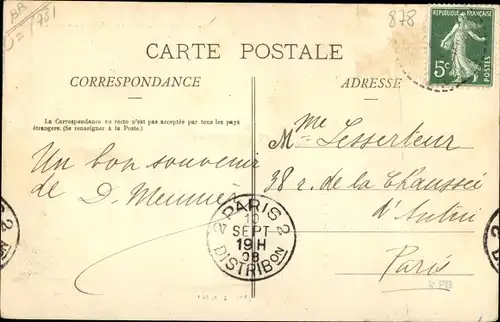 878
RÉPUBLIQUE FRANÇAISE
5c
POSTES
CARTE POSTALE
CORRESPONDANCE
ADRESSE
La Correspondance au recto n'est pas acceptée par tous les pays
étrangers. (Se renseigner à la Poste.)
Un bon souvenir
de D. Meunier
Mme Lesserteur
38 r. de la Chaussée
d'Antin
Paris
PARIS 2
10
SEPT
19H
08
DISTRIBON
2